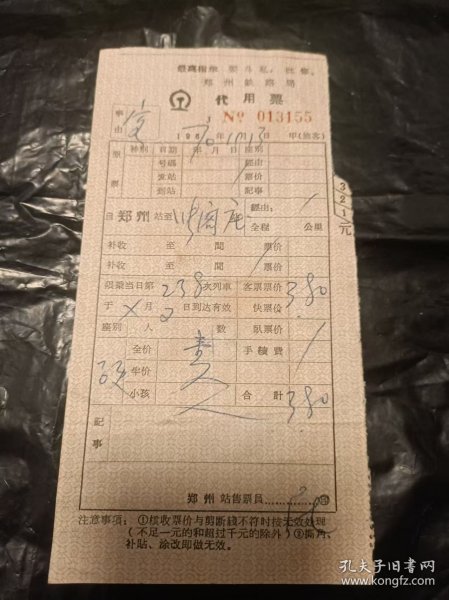 最高指示 要斗私，批修。
郑州铁路局
代用票
Nº 013155
事由
196 年 甲(旅客)
原票
种别 日期 年 月 日 座别
号码 经由
发站 票价
到站 记事
自 郑州 站至 经由：
全程 公里
补收 至 间 票价
补收 至 间 票价
限乘当日第 238 次列車 客票票价 3.80
于 月 日到达有效 快票价
座别 人 数 臥票价
全价 手續費
半价
小孩 合計 3.80
記事
郑州 站售票员
注意事項：①核收票价与剪断綫不符时按无效处理
(不足一元的和超过千元的除外)②撕角、
补貼、涂改即做无效。
3 2 1 元
孔夫子旧书网
www.kongfz.com